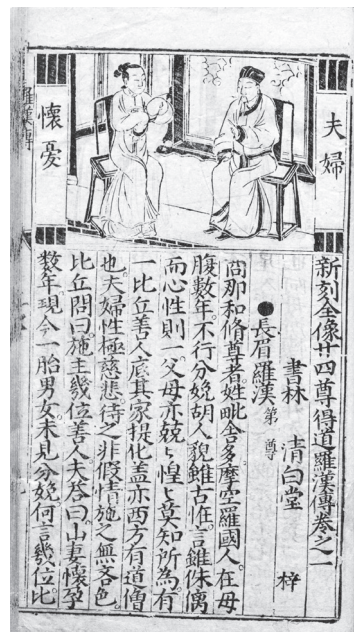 夫婦
懷憂
新刻全像廿四尊得道羅漢傳卷之一
書林 清白堂 梓
●長眉羅漢 第 尊
商那和脩尊者姓毗舍多摩空羅國人在母
腹數年不行分娩胡人貌雖古恠言雖侏偊
而心性則一父母亦兢〻惶〻莫知所為有
一比丘善人底其家提化盖亦西方有道僧
也夫婦性極慈悲待之非假情施之無吝色
比丘問曰施主幾位善人夫答曰山妻懷孕
数年現今一胎男女未見分娩何言幾位比
羅漢傳